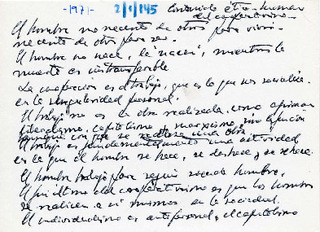 -1971- 2/1/145 Contenido ético-humano
del cooperativismo.
El hombre no necesita de otros para vivir:
necesita de otros para ser.
El hombre no nace, le "nacen", mientras la
muerte es intransferible.
La cooperación es el trabajo, que es lo que nos socializa
en la singularidad personal.
El trabajo no es la obra realizada, como afirman
liberalismo, capitalismo y marxismo, sin la función
con que se realiza una obra.
El trabajo es fundamentalmente una actividad
en la que el hombre se hace, se deshace, y se rehace.
El hombre trabaja para seguir siendo hombre.
El fin último del cooperativismo es que los hombres
se realicen a sí mismos en la sociedad.
El individualismo es antipersonal, y el capitalismo